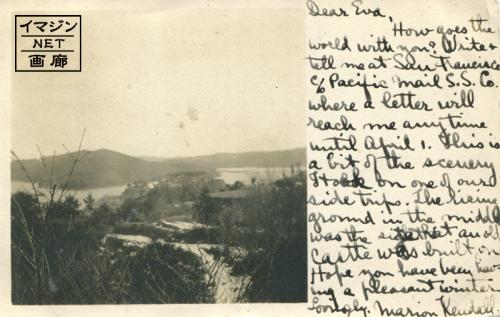 イマジン
NET
画廊
Dear Eva,
How goes the
world with you? Write &
tell me at San Francisco
c/o Pacific Mail S.S. Co.
where a letter will
reach me anytime
until April 1. This is
a bit of the scenery
I took on one of our
side trips. The rising
ground in the middle
was the site that an old
castle was built on.
Hope you have been hav-
ing a pleasant winter
Lovingly, Marion Kendall